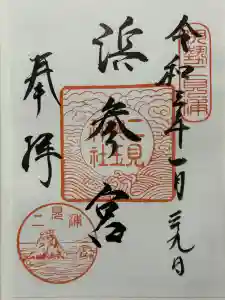 伊勢二見浦
令和三年十一月廿九日
浜参宮
二見興玉神社
奉拝
二見浦